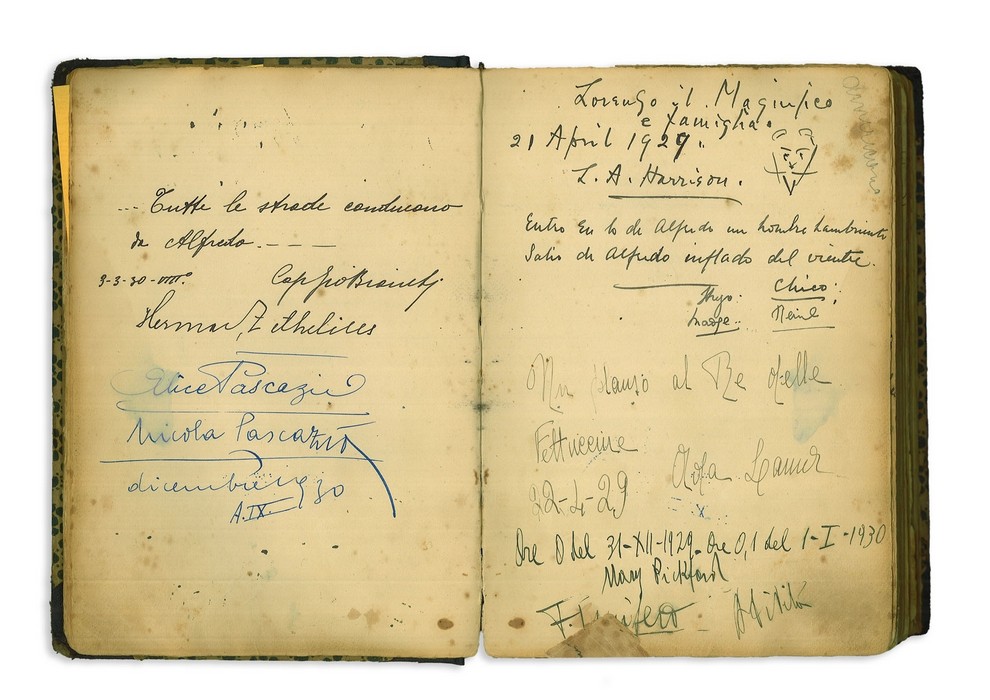 ... Tutti le strade conducono
da Alfredo. - - -
3-3-30-VIII°
Herman
Elice Pascazio
Nicola Pascazio
dicembre 1930
A. IX.
Lorenzo il Magnifico
e famiglia.
21 April 1929.
L. A. Harrison.
Entro en lo de Alfredo un hombre hambriento
Salio de Alfredo inflado del vientre.
Chico:
Un plauso al Re delle
Fettuccine
22-4-29
Ore 0 del 31-XII-1929. Ore 0,1 del 1-I-1930
Mary Pickford